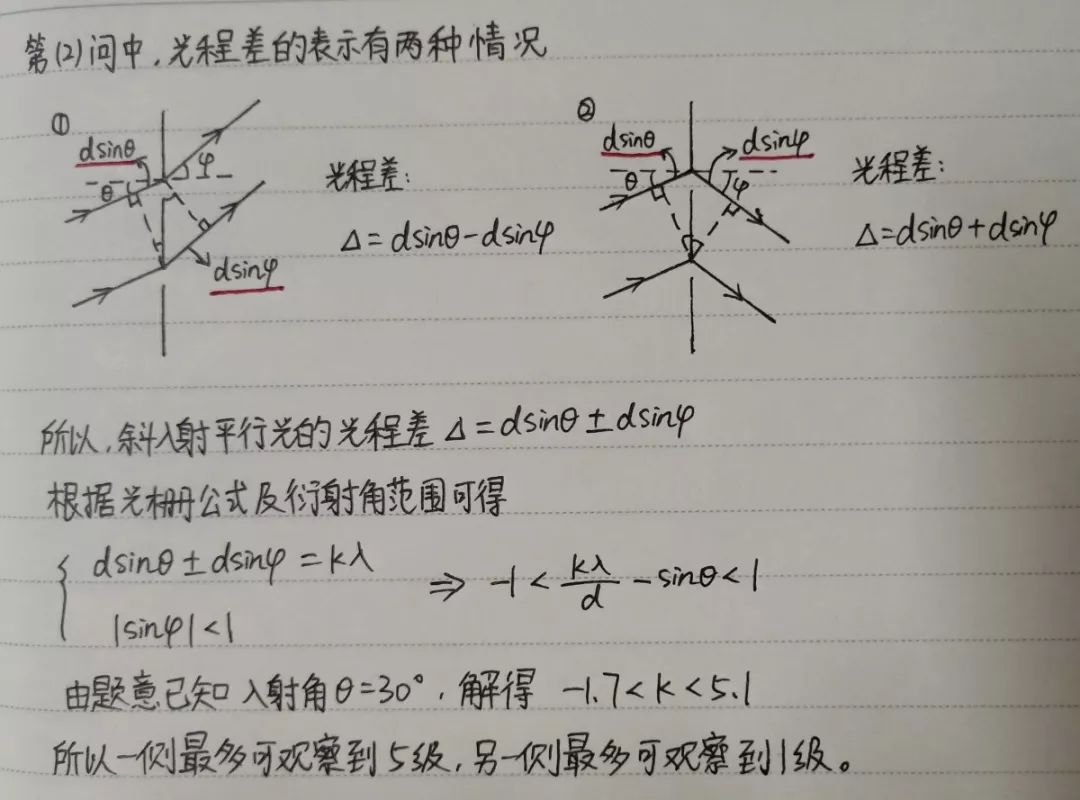 第(2)问中,光程差的表示有两种情况
①
dsinθ
φ
θ
dsinφ
光程差:
Δ=dsinθ-dsinφ
②
dsinθ
dsinφ
θ
φ
光程差:
Δ=dsinθ+dsinφ
所以,斜入射平行光的光程差Δ=dsinθ±dsinφ
根据光栅公式及衍射角范围可得
{ dsinθ±dsinφ=kλ
|sinφ|<1
⇒ -1<kλ/d-sinθ<1
由题意已知入射角θ=30°,解得 -1.7<k<5.1
所以一侧最多可观察到5级,另一侧最多可观察到1级。